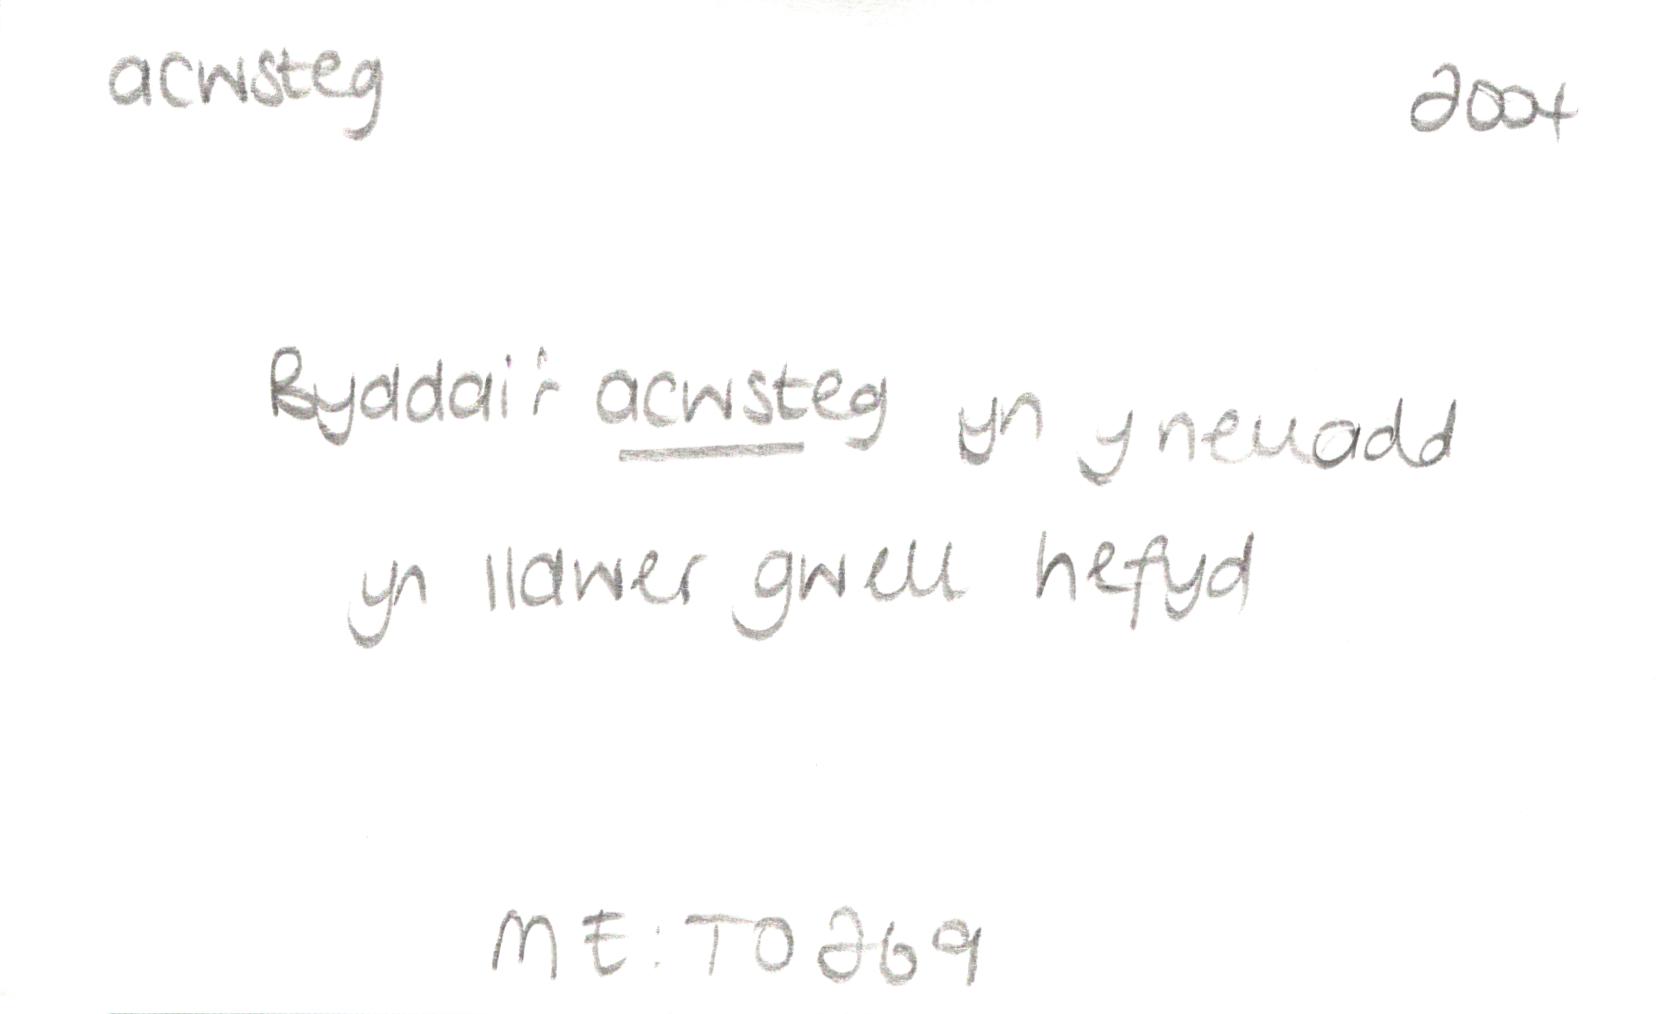 acwsteg 2004
Byddai'r acwsteg yn y neuadd
yn llawer gwell hefyd
ME: TO269